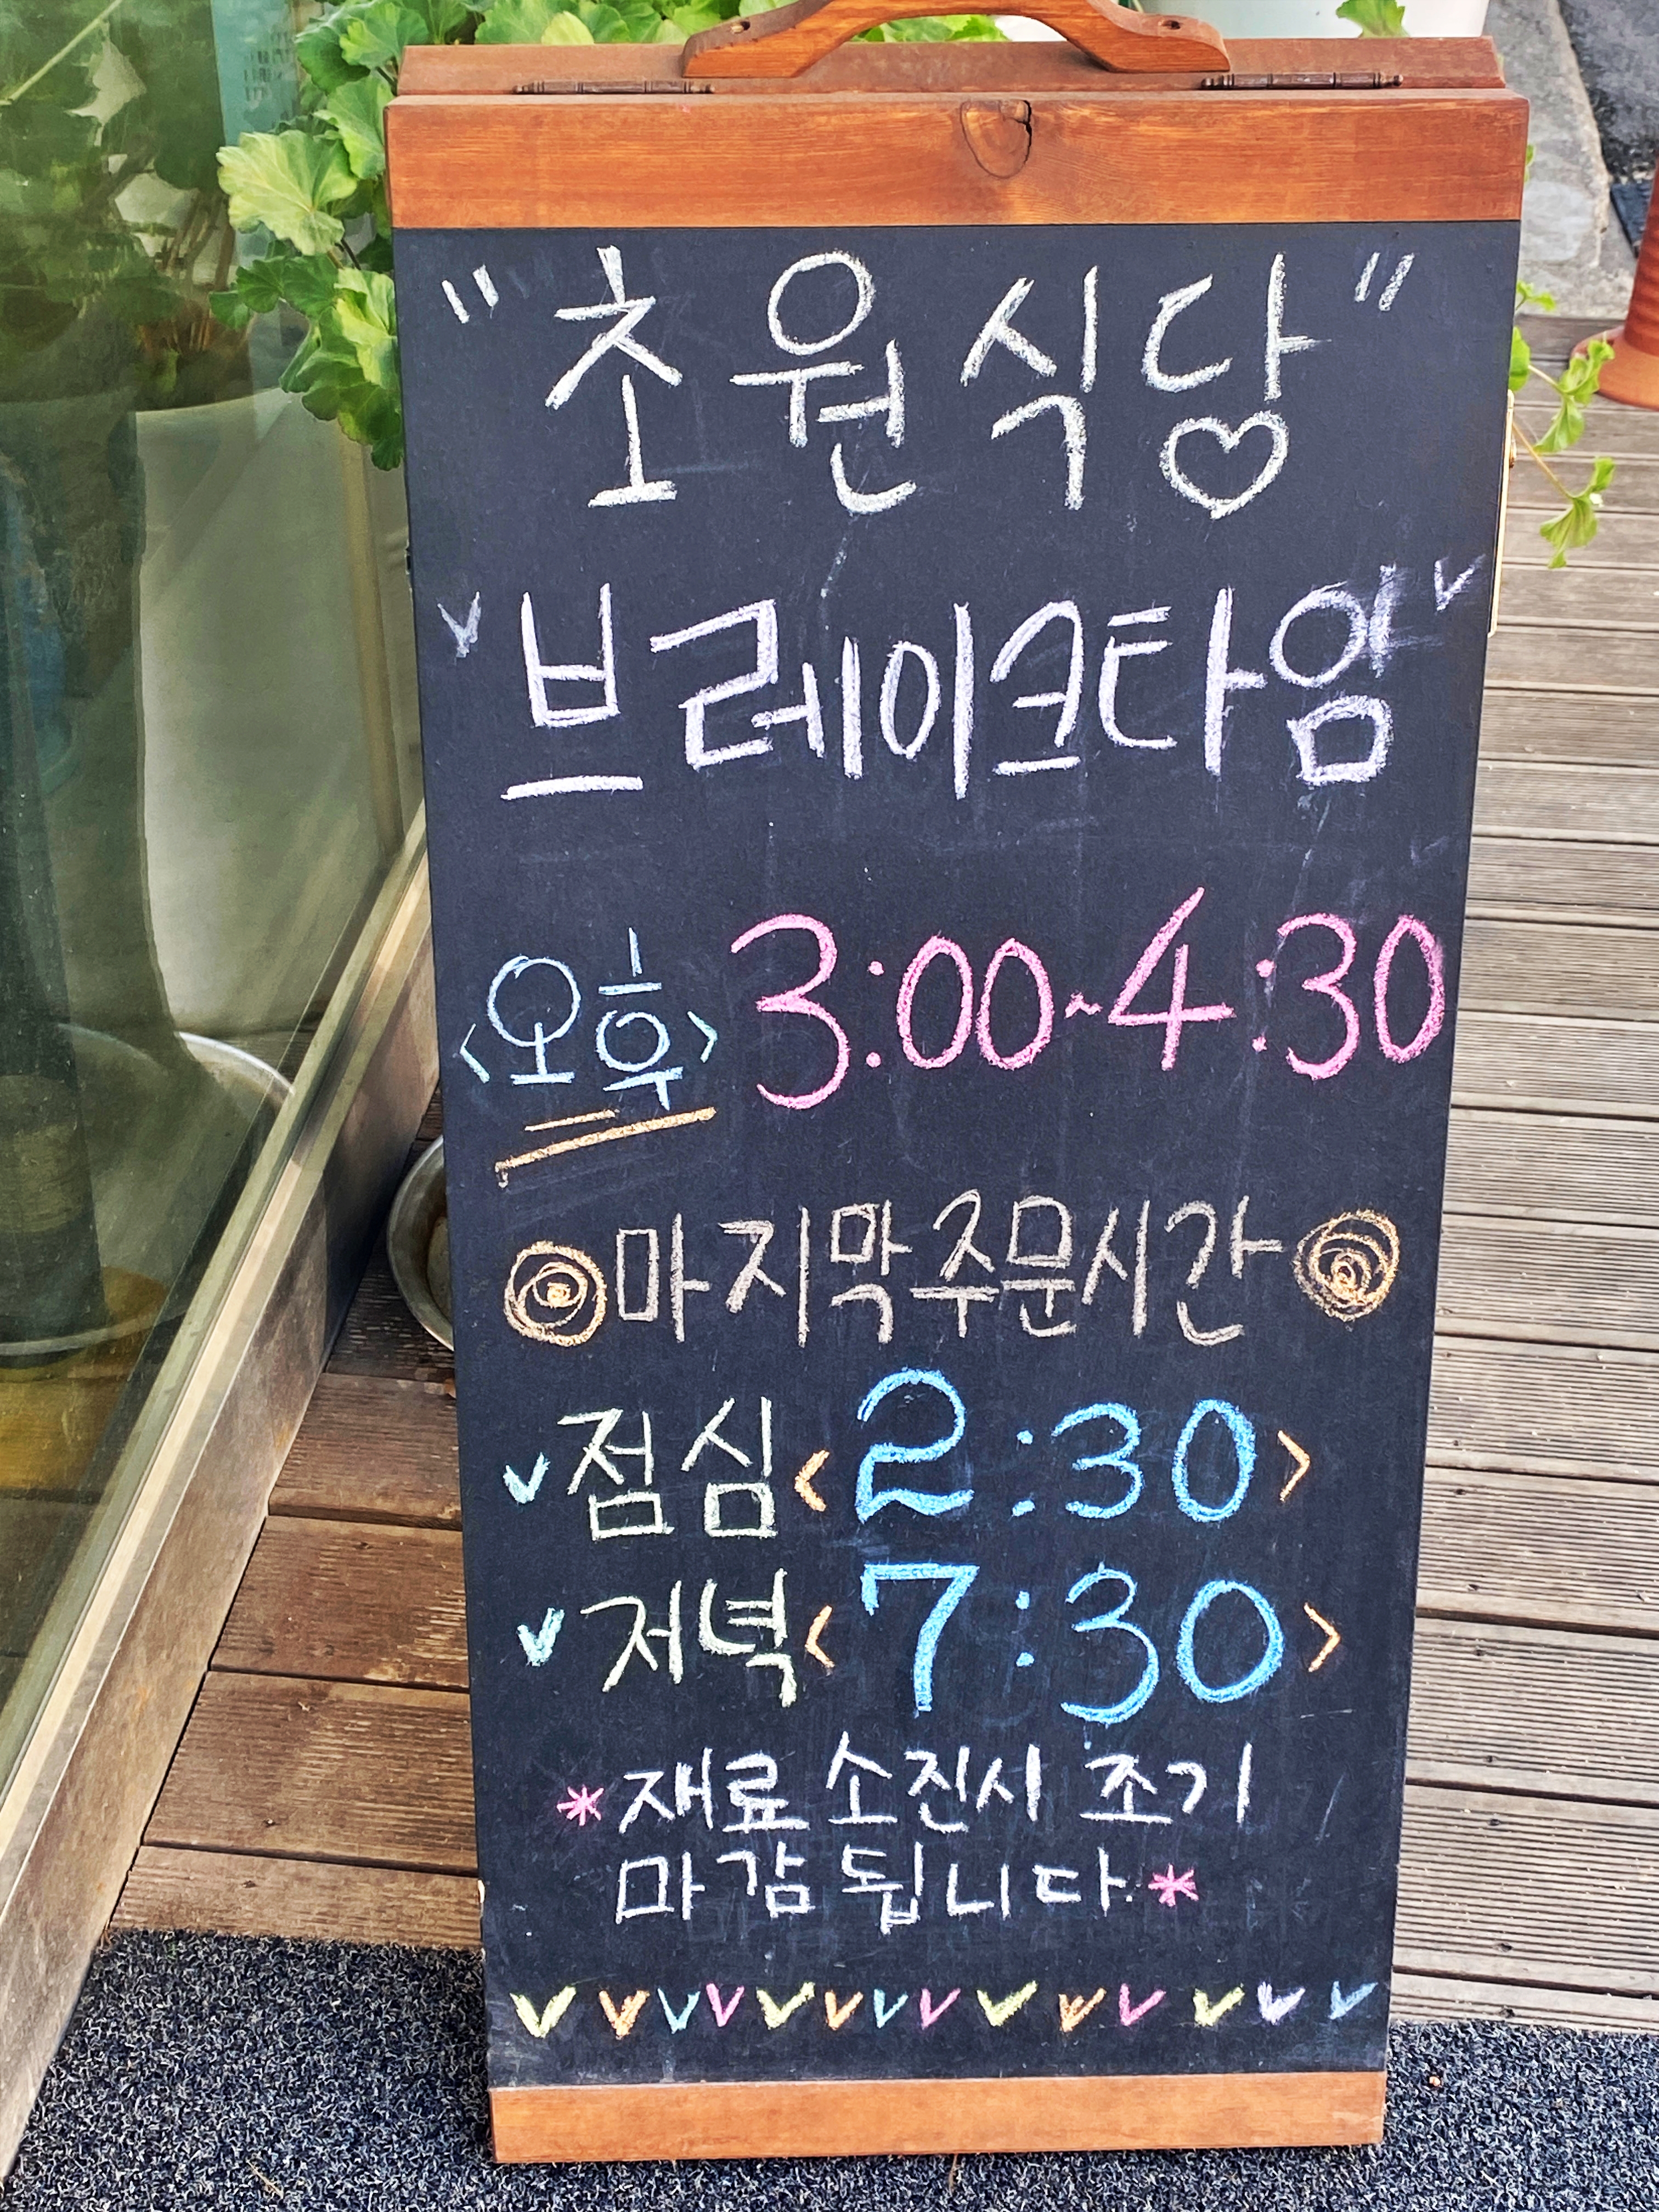 "초원식당"
"브레이크타임"
<오후> 3:00~4:30
마지막주문시간
점심<2:30>
저녁<7:30>
*재료 소진시 조기
마감됩니다.*